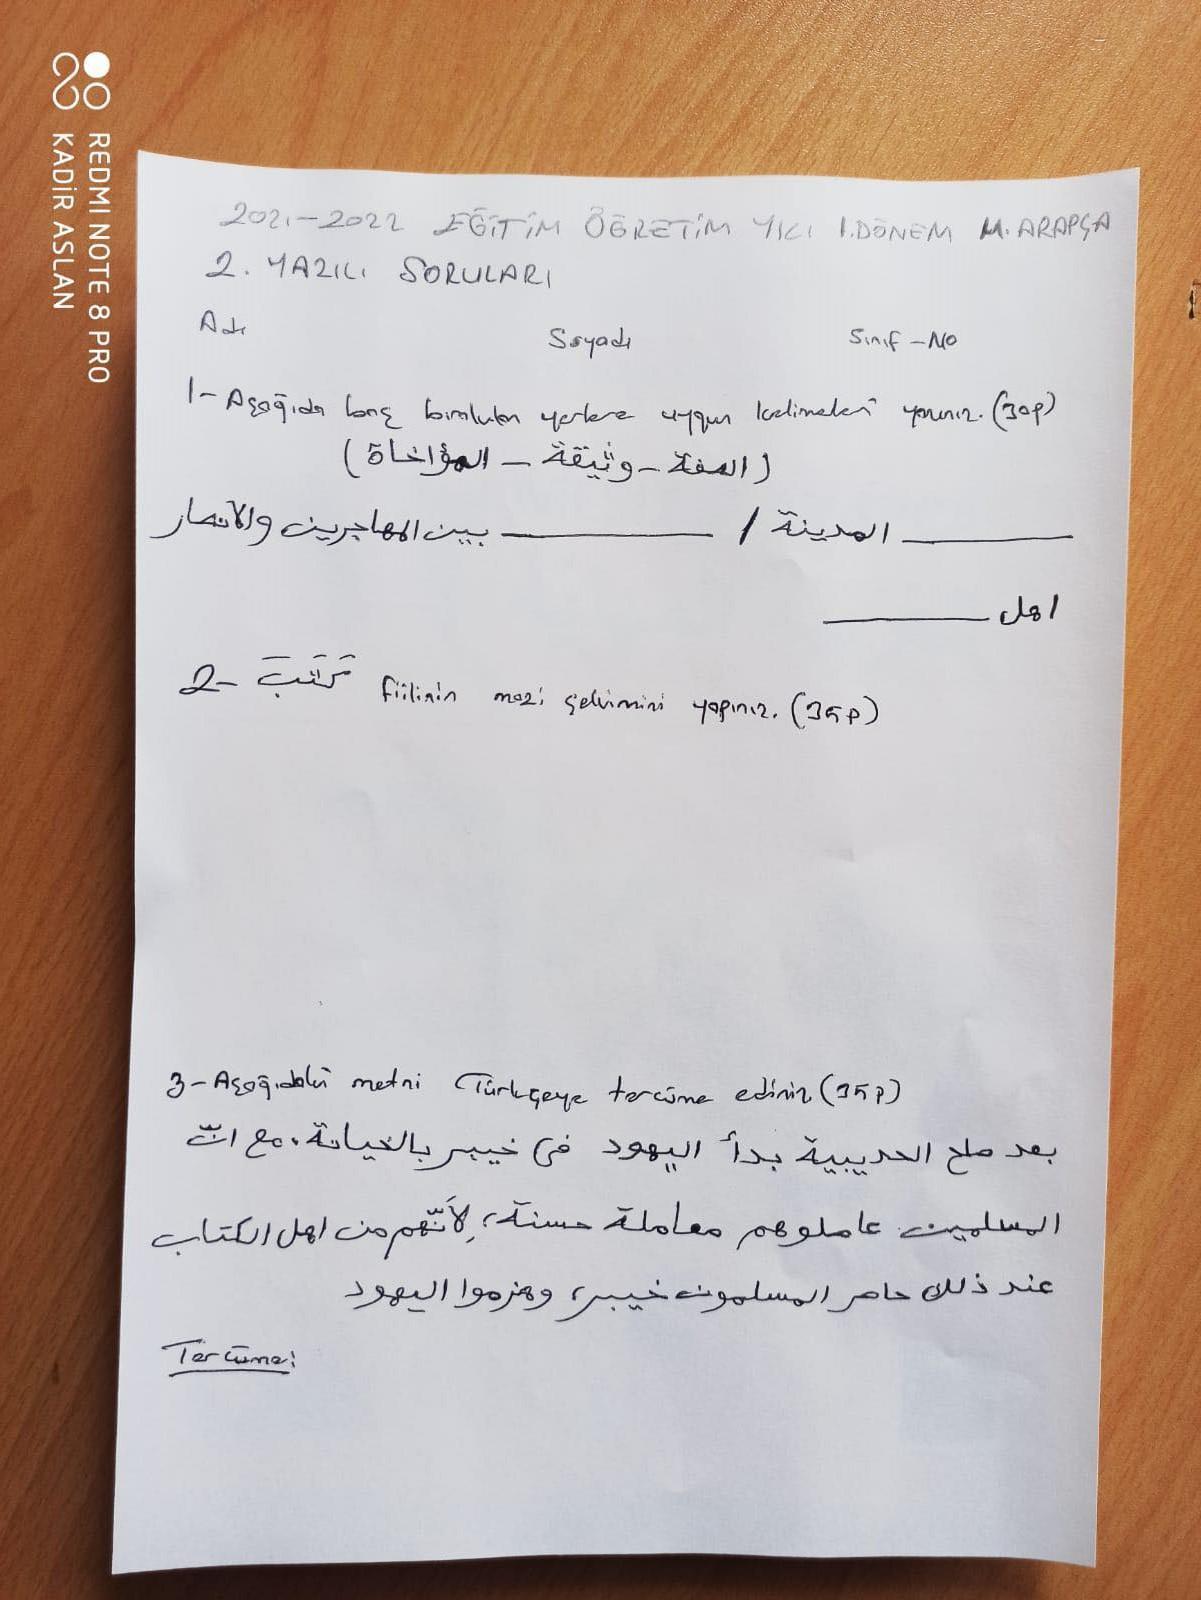 REDMI NOTE 8 PRO
KADİR ASLAN
2021-2022 EĞİTİM ÖĞRETİM YILI I.DÖNEM M. ARAPÇA
2. YAZILI SORULARI
Adı Soyadı Sınıf-No
1- Aşağıda boş bırakılan yerlere uygun kelimeleri yazınız. (30p)
(الصفة - وثيقة - المؤاخاة)
_____ المدينة / _____ بين المهاجرين والأنصار
اهل _____
2- كَتَبَ fiilinin mazi çekimini yapınız. (35p)
3- Aşağıdaki metni Türkçeye tercüme ediniz (35p)
بعد صلح الحديبية بدأ اليهود في خيبر بالخيانة، مع انّ
المسلمين عاملوهم معاملة حسنة، لِأَنَّهم من اهل الكتاب
عند ذلك حاصر المسلمون خيبر، وهزموا اليهود
Tercüme: